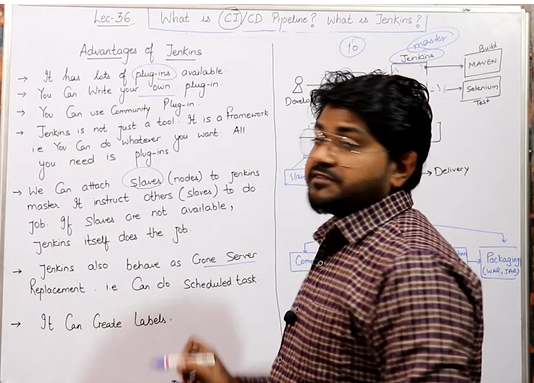 Lec-36 What is CI/CD Pipeline? What is Jenkins?
Advantages of Jenkins
→ It has lots of plug-ins available.
→ You Can Write your own plug-in
→ You Can use Community Plug-in.
→ Jenkins is not just a tool. It is a Framework
i.e You Can do whatever you want. All
you need is plug-ins
→ We Can attach slaves (nodes) to Jenkins
master. It instruct others (slaves) to do
Job. If Slaves are not available,
Jenkins itself does the job.
→ Jenkins also behave as Crone Server
Replacement. i.e Can do Scheduled task
→ It Can Create Labels.
10
master
Jenkins
Build
MAVEN
Selenium
Test
→ Delivery
Packaging
(WAR, JAR)